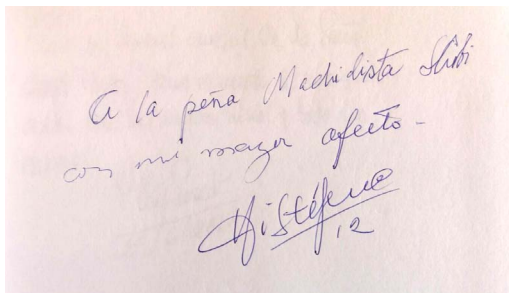 A la peña Madridista
con mi mayor afecto -
Di Stéfano
12